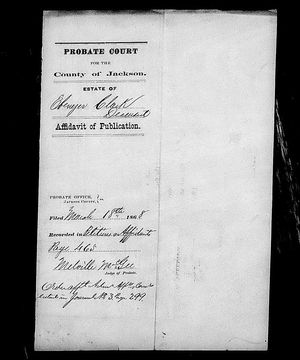 PROBATE COURT
FOR THE
County of Jackson.
ESTATE OF
Ebenezer Clark
Deceased
Affidavit of Publication.
PROBATE OFFICE,
JACKSON COUNTY,
Filed March 18th 1868
Recorded in Petitions & Affidavits
Page 465
Melville McGee
Judge of Probate.
in Journal No 3 Page 299